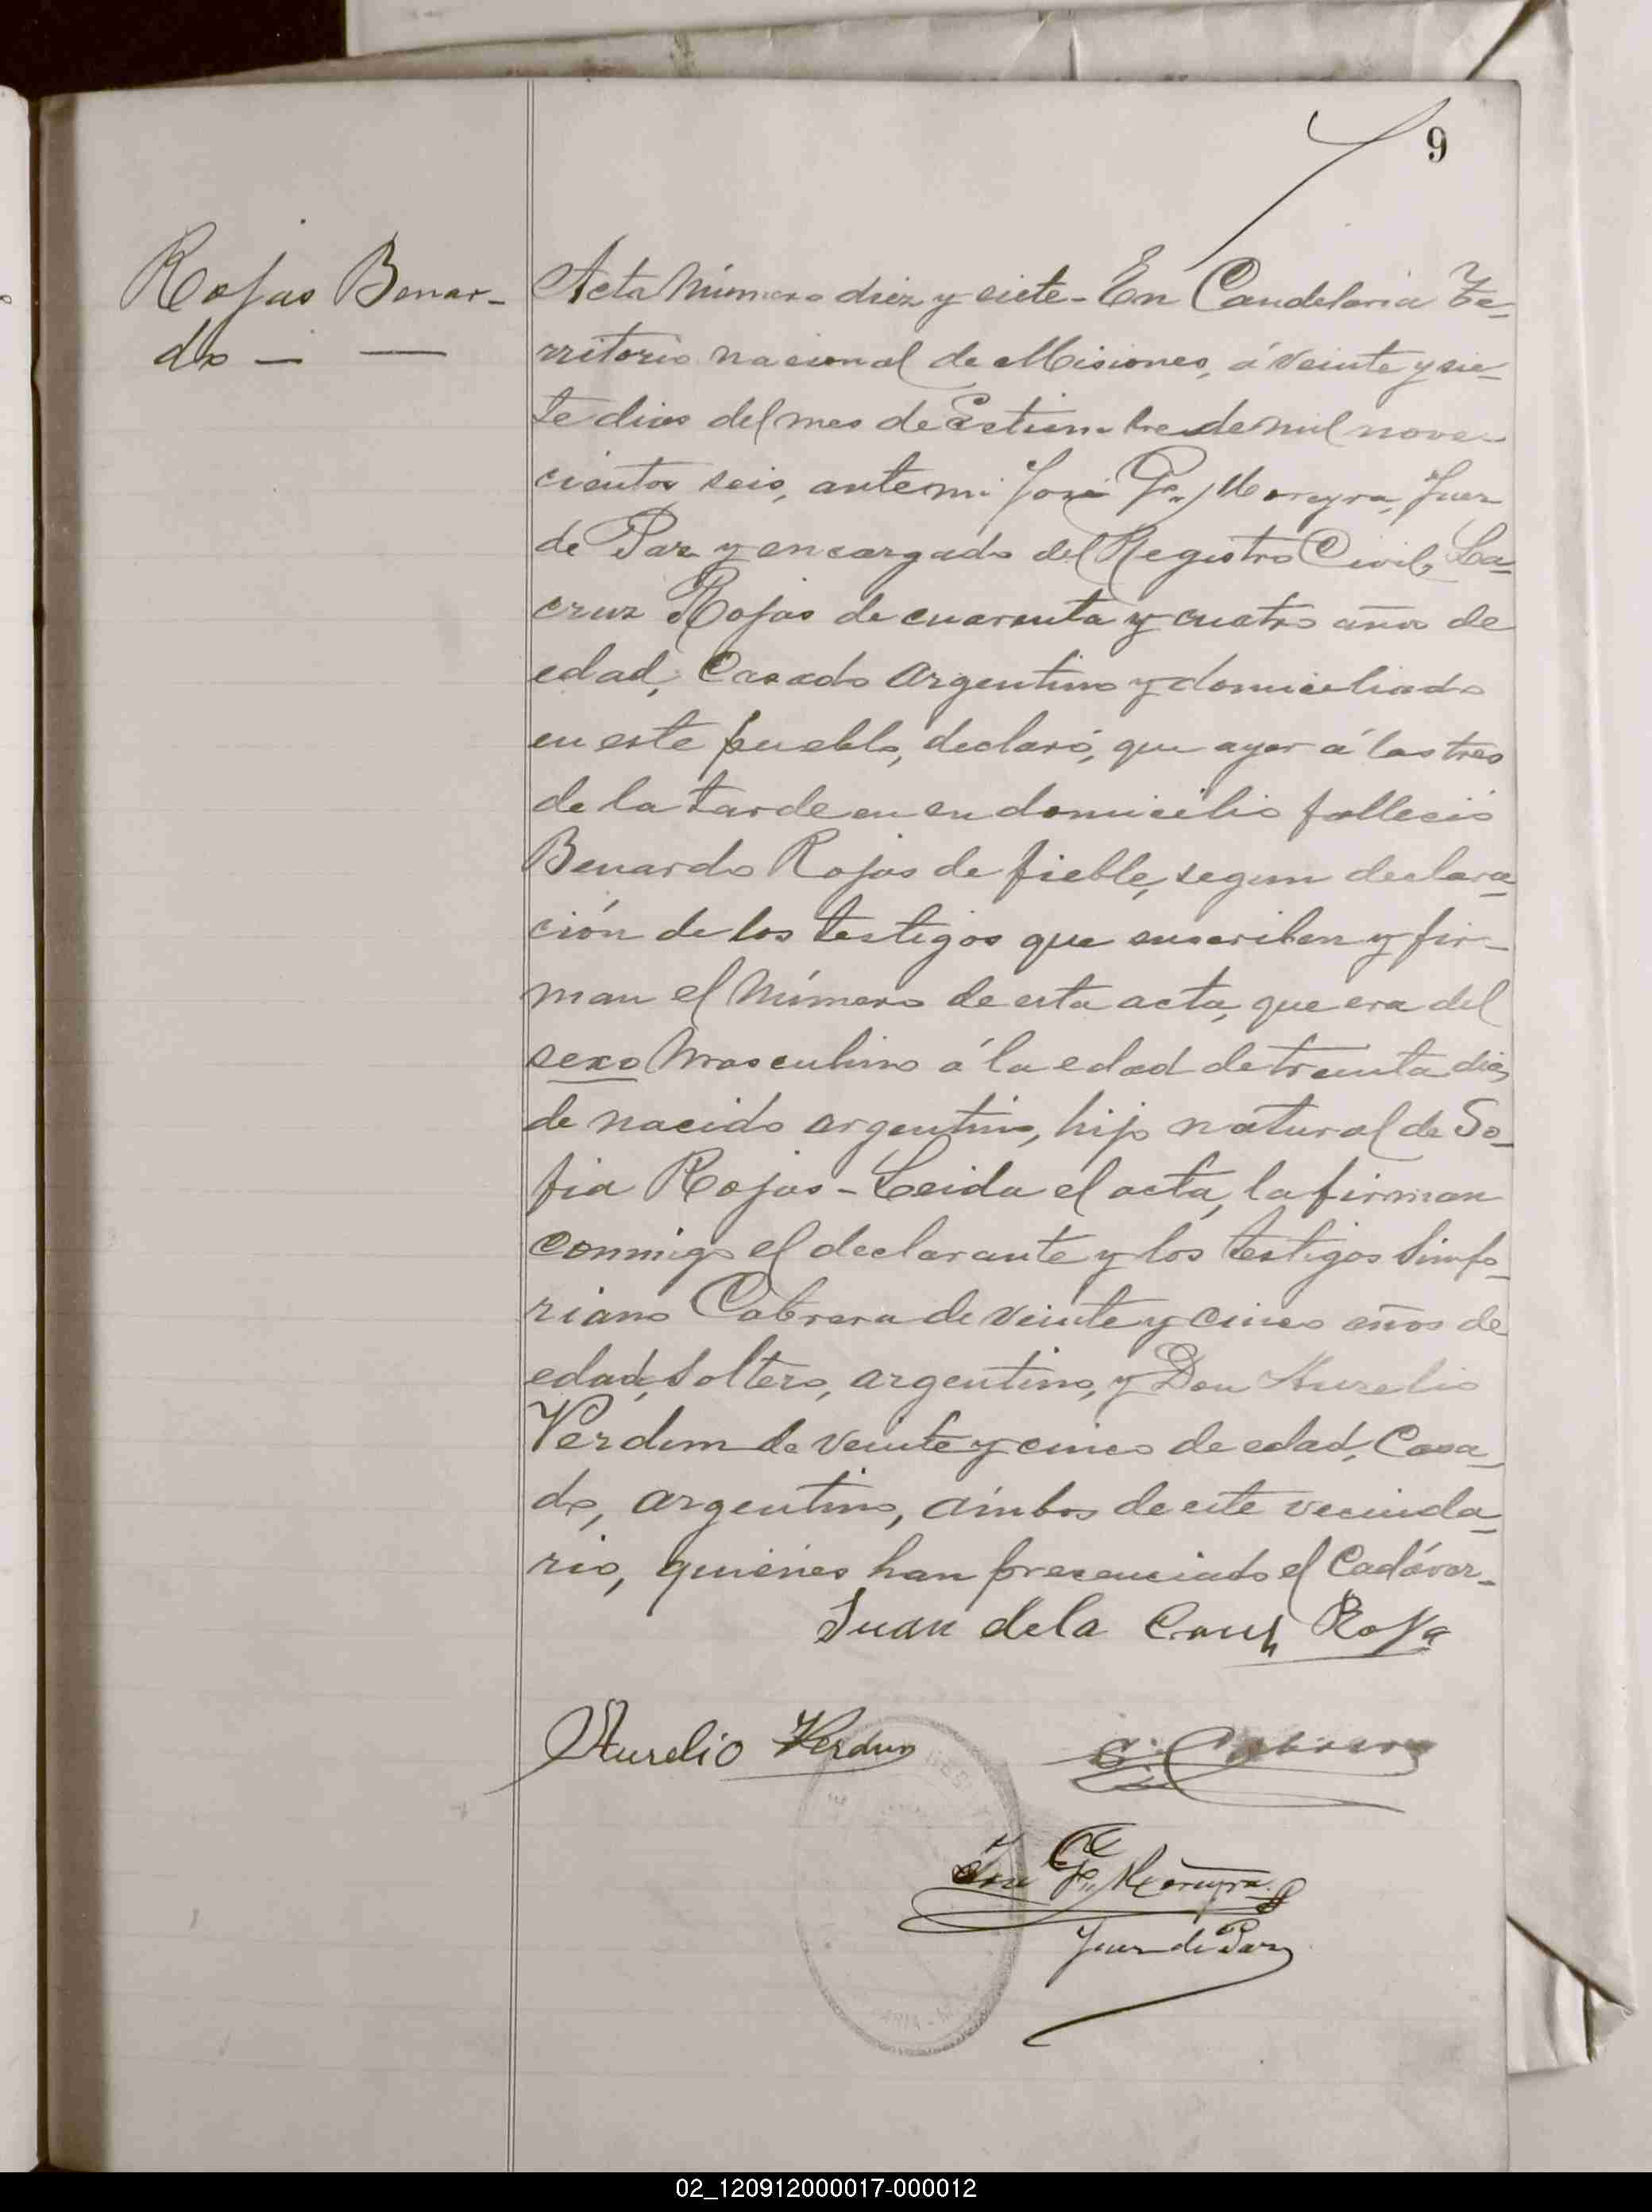 9
Rojas Benar-
do — —
Acta Número diez y siete - En Candelaria Te-
rritorio nacional de Misiones, á veinte y sie-
te dias del mes de Setiembre de mil nove-
cientos seis, ante mi José F. Moreyra, Juez
de Paz y encargado del Registro Civil, La-
cruz Rojas de cuarenta y cuatro años de
edad, Casado argentino y domiciliado
en este pueblo, declaró, que ayer á las tres
de la tarde en su domicilio falleció
Benardo Rojas de fieble, segun declara-
ción de los testigos que suscriben y fir-
man el Número de esta acta, que era del
sexo Masculino á la edad de treinta dias
de nacido argentino, hijo natural de So-
fia Rojas - Leida el acta, la firman
conmigo el declarante y los testigos Sinfo-
riano Cabrera de veinte y cinco años de
edad, Soltero, argentino, y Don Aurelio
Verdun de veinte y cinco de edad, Casa-
do, argentino, ámbos de este vecinda-
rio, quiénes han presenciado el Cadáver-
Juan dela Cruz Roja
Aurelio Verdun
S. Cabrera
José F. Moreyra
Juez de Paz
02_120912000017-000012